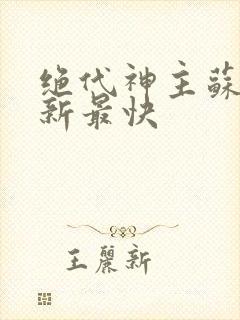 绝代神主蘇
新最快
王麗新